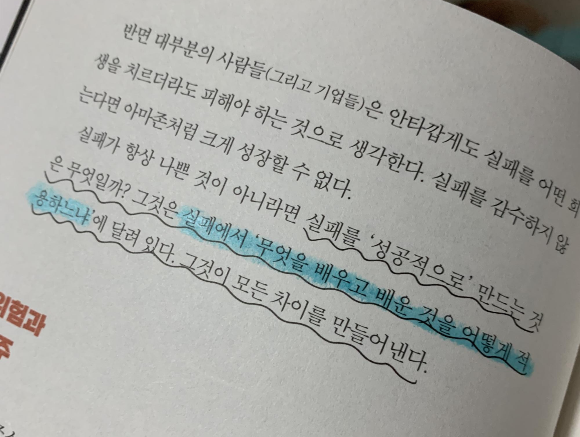 반면 대부분의 사람들(그리고 기업들)은 안타깝게도 실패를 어떤 희
생을 치르더라도 피해야 하는 것으로 생각한다. 실패를 감수하지 않
는다면 아마존처럼 크게 성장할 수 없다.
실패가 항상 나쁜 것이 아니라면 실패를 ‘성공적으로’ 만드는 것
은 무엇일까? 그것은 실패에서 ‘무엇을 배우고 배운 것을 어떻게 적
용하느냐’에 달려 있다. 그것이 모든 차이를 만들어낸다.
위험과
주